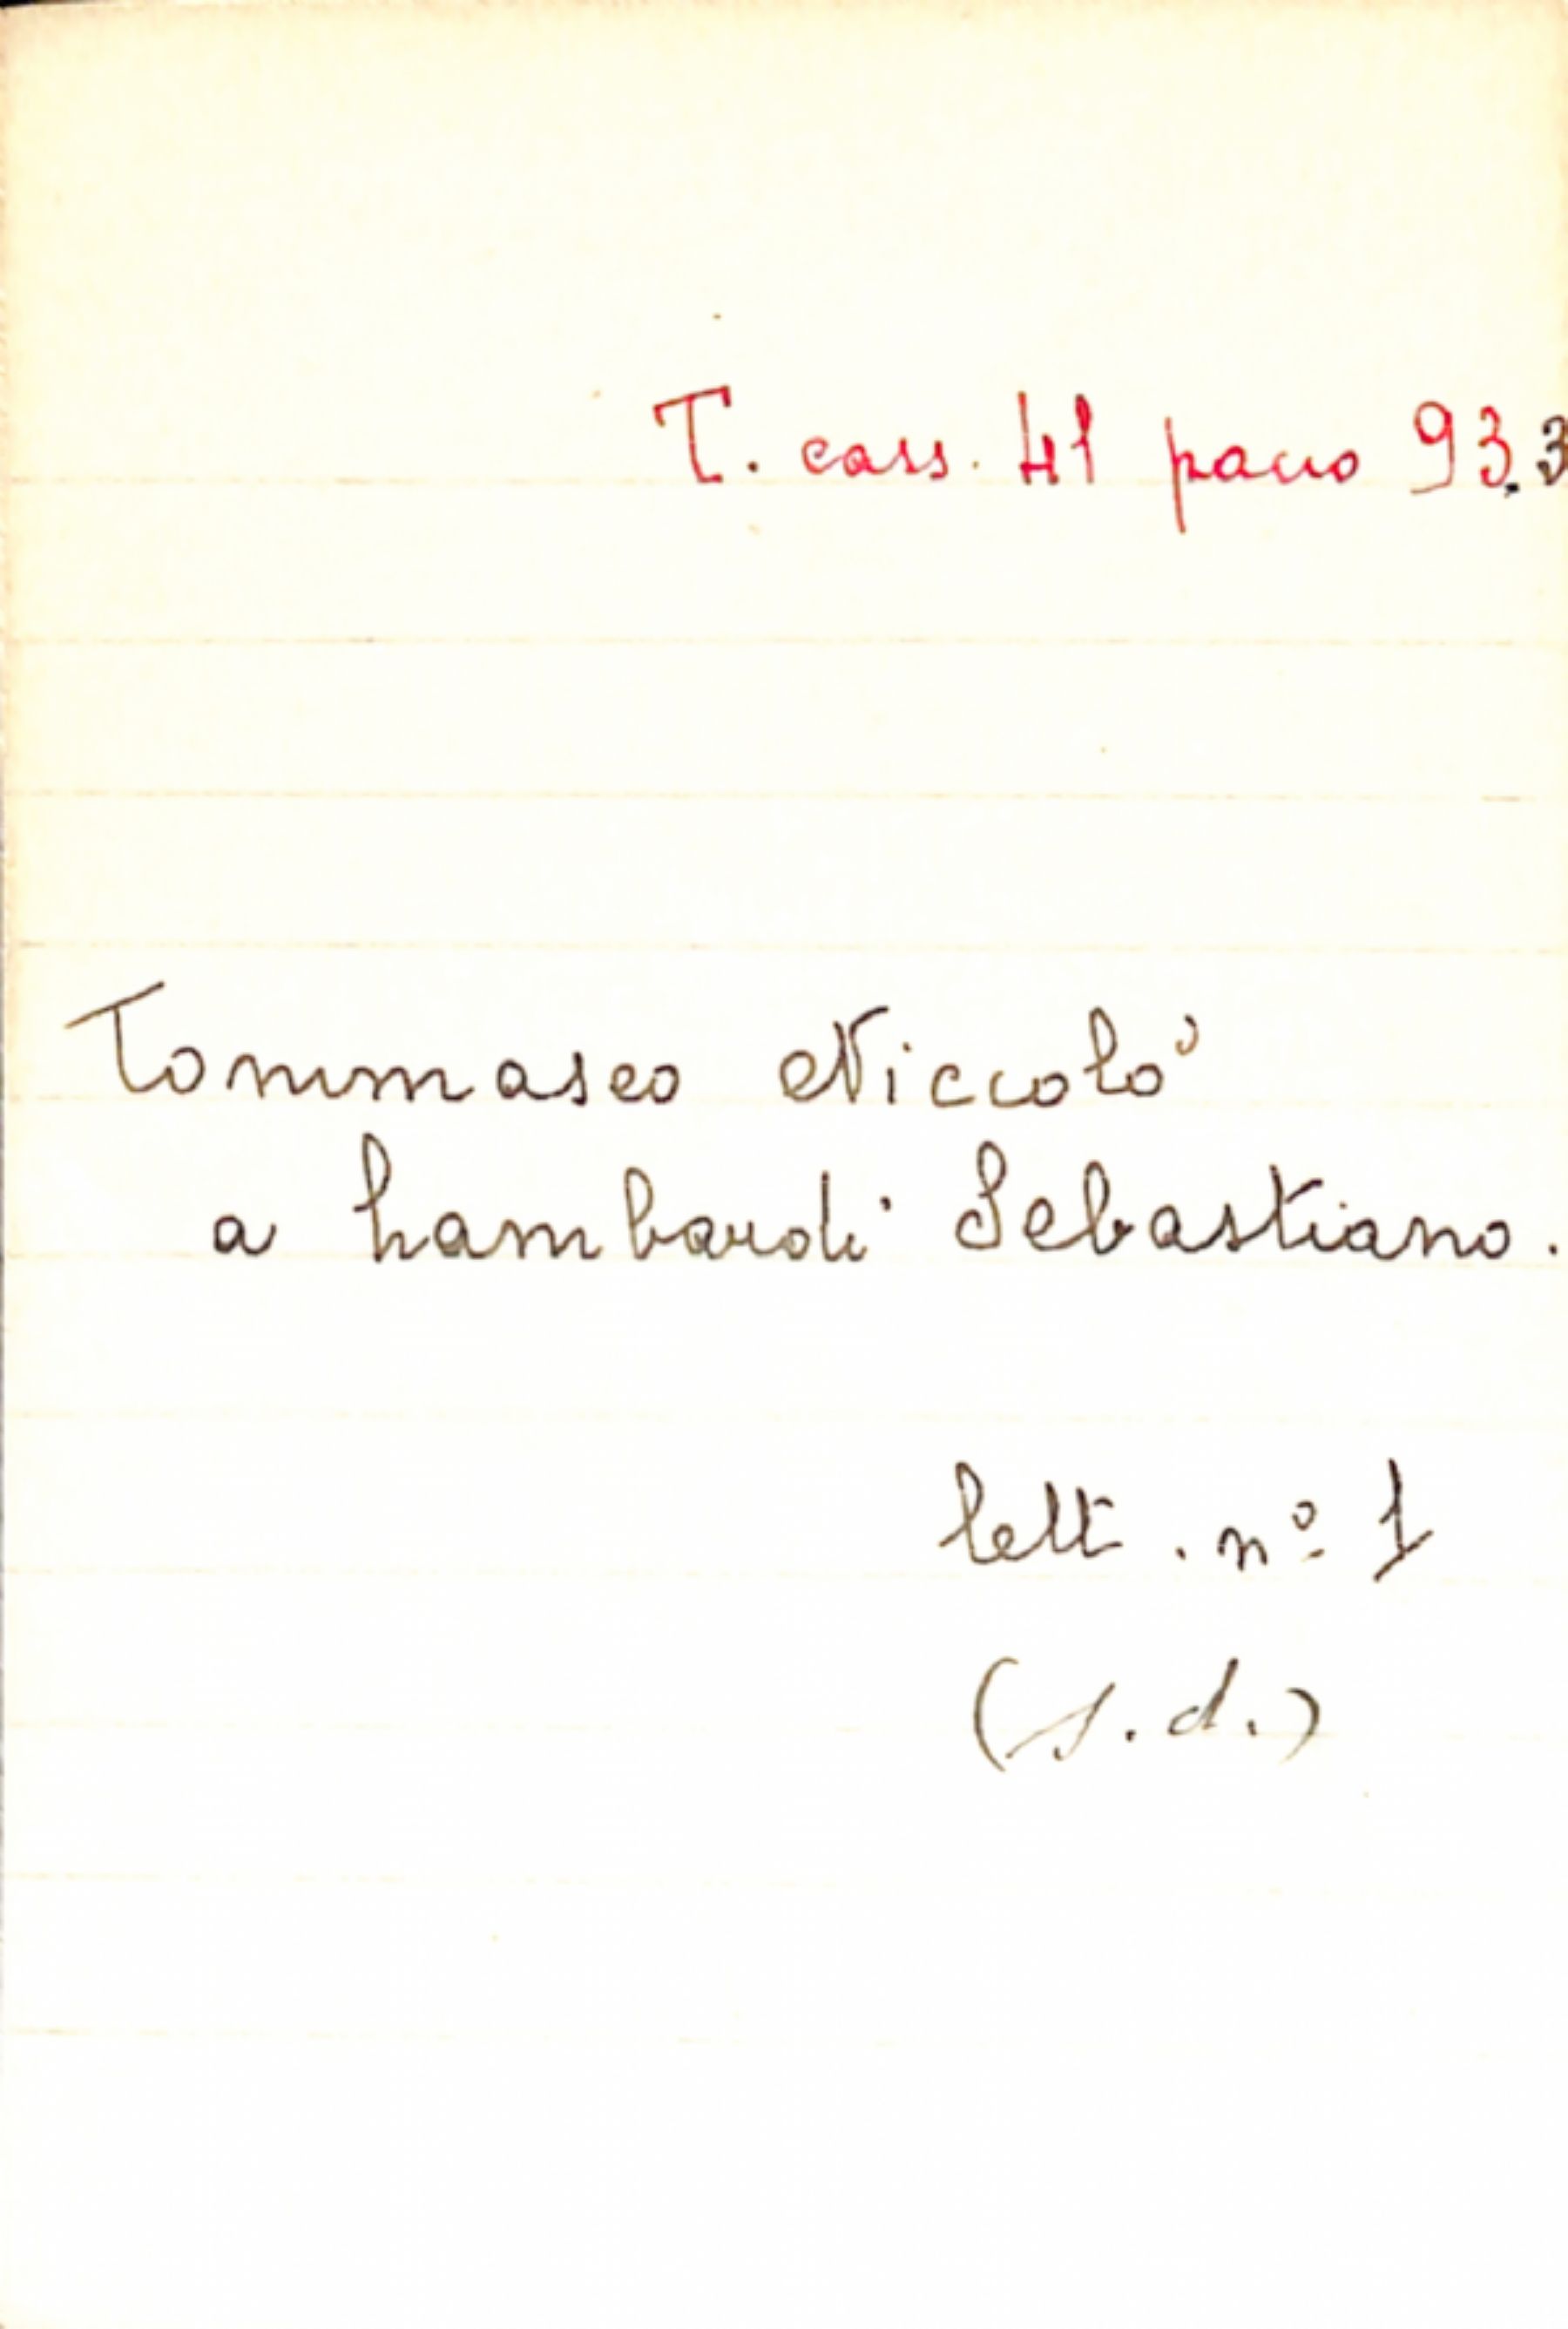 T. cass. 41 pacco 93.3
Tommaseo Niccolò
a Lambardi Sebastiano.
lett. nº 1
(s.d.)